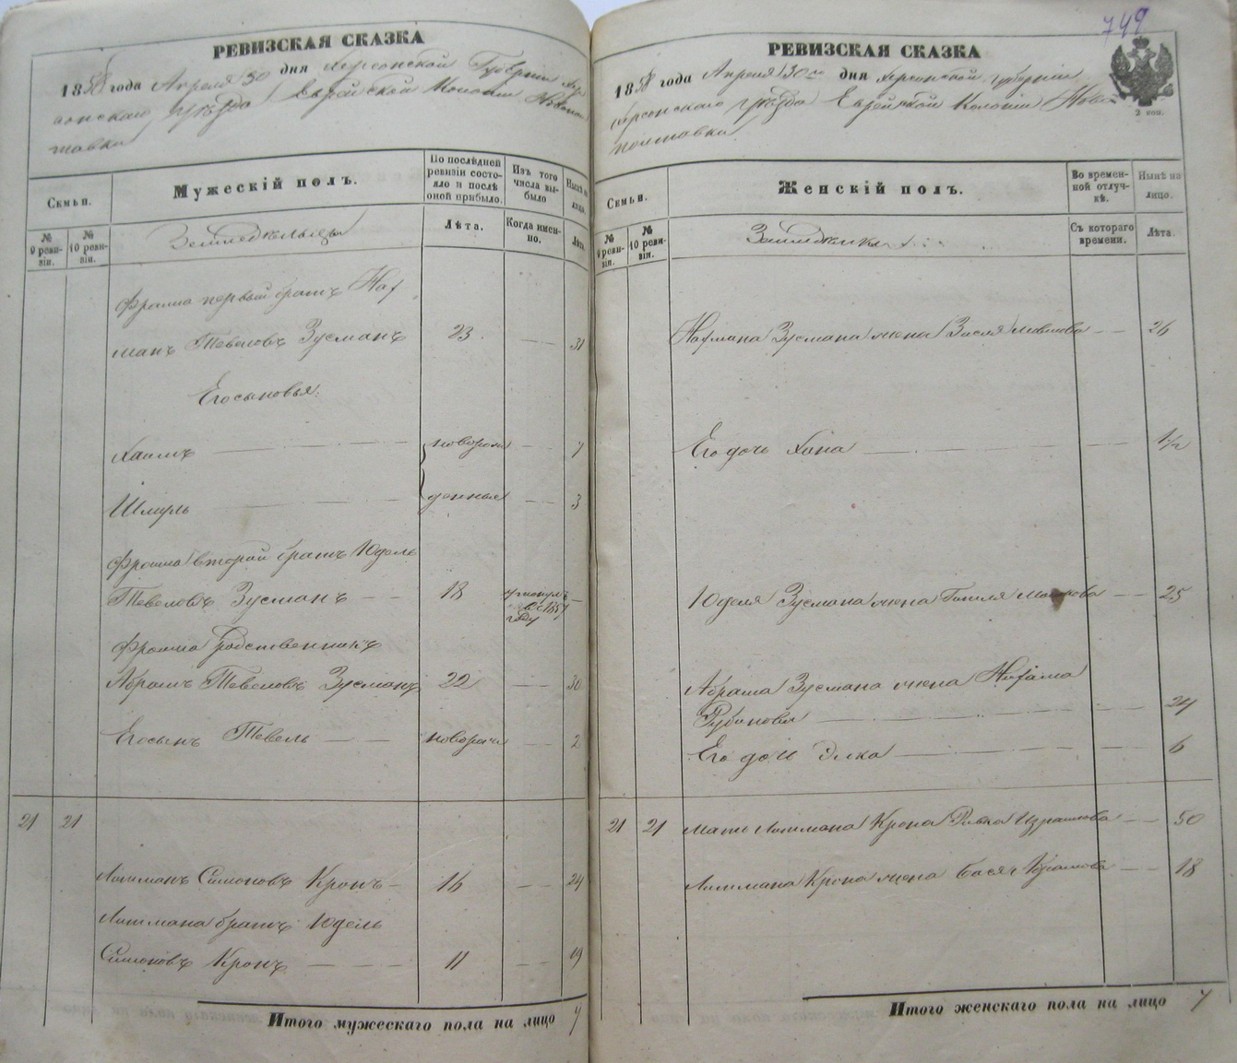 РЕВИЗСКАЯ СКАЗКА
1858 года Апреля 30 дня Херсонской Губернии Хер
сонского Уѣзда Еврейской Колоніи Новопол
тавки
Семьи.
Мужескій полъ.
По послѣдней ревизіи состояло и послѣ оной прибыло.
Изъ того числа выбыло
Нынѣ на лицо.
№ 9 ревизіи.
№ 10 ревизіи.
Земледѣльцы
Лѣта.
Когда именно.
Лѣта
Фроима первый братъ Нах
манъ Тевеловъ Зусманъ 23 31
Его сыновья:
Хаимъ новорож 7
Шмуль денные 3
Фроима второй братъ Юдель
Тевеловъ Зусманъ 18 в 1857 году
Фроима родственникъ
Абрамъ Тевеловъ Зусманъ 22 30
Его сынъ Тевель новорож 2
21 21
Симоновъ Кронъ 16 24
братъ Юдель
Симоновъ Кронъ 11 19
Итого мужескаго пола на лицо 7
749
РЕВИЗСКАЯ СКАЗКА
1858 года Апреля 30 дня Херсонской Губерніи
Херсонского Уѣзда Еврейской Колоніи Ново
полтавки
2 коп.
Семьи.
Женскій полъ.
Во временной отлучкѣ.
Нынѣ на лицо.
№ 9 ревизіи.
№ 10 ревизіи.
Съ котораго времени.
Лѣта.
Нахмана Зусмана жена 26
Его дочь Хана 1/2
Юделя Зусмана жена 25
Абрама Зусмана жена Нехама
Рубинова 24
Его дочь Элка 6
21 21 Мать Крона Ривка 50
Крона жена Бася 18
Итого женскаго пола на лицо 7